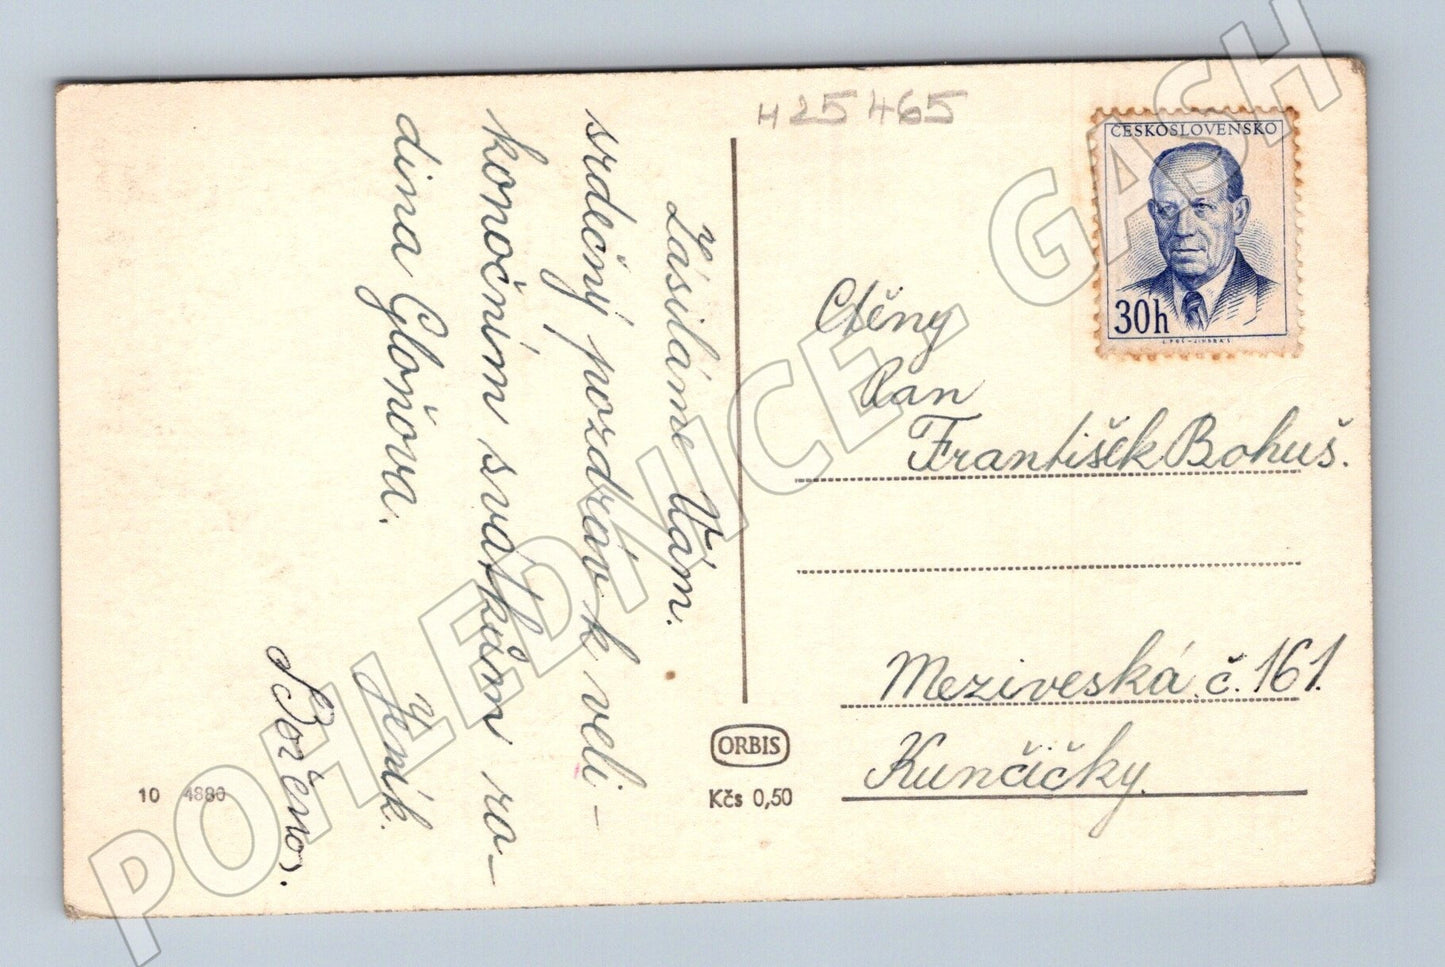 Zásiláme Vám.
srdečný pozdrav k veli-
konočním svátkům ro-
dina Gloňova.
Jeník.
Božena.
10 4880
H25465
ČESKOSLOVENSKO
30h
Ctěny
Pan
František Bohuš.
Meziveská č. 161.
Kunčičky.
ORBIS
Kčs 0,50
POHLEDNICE.GASH